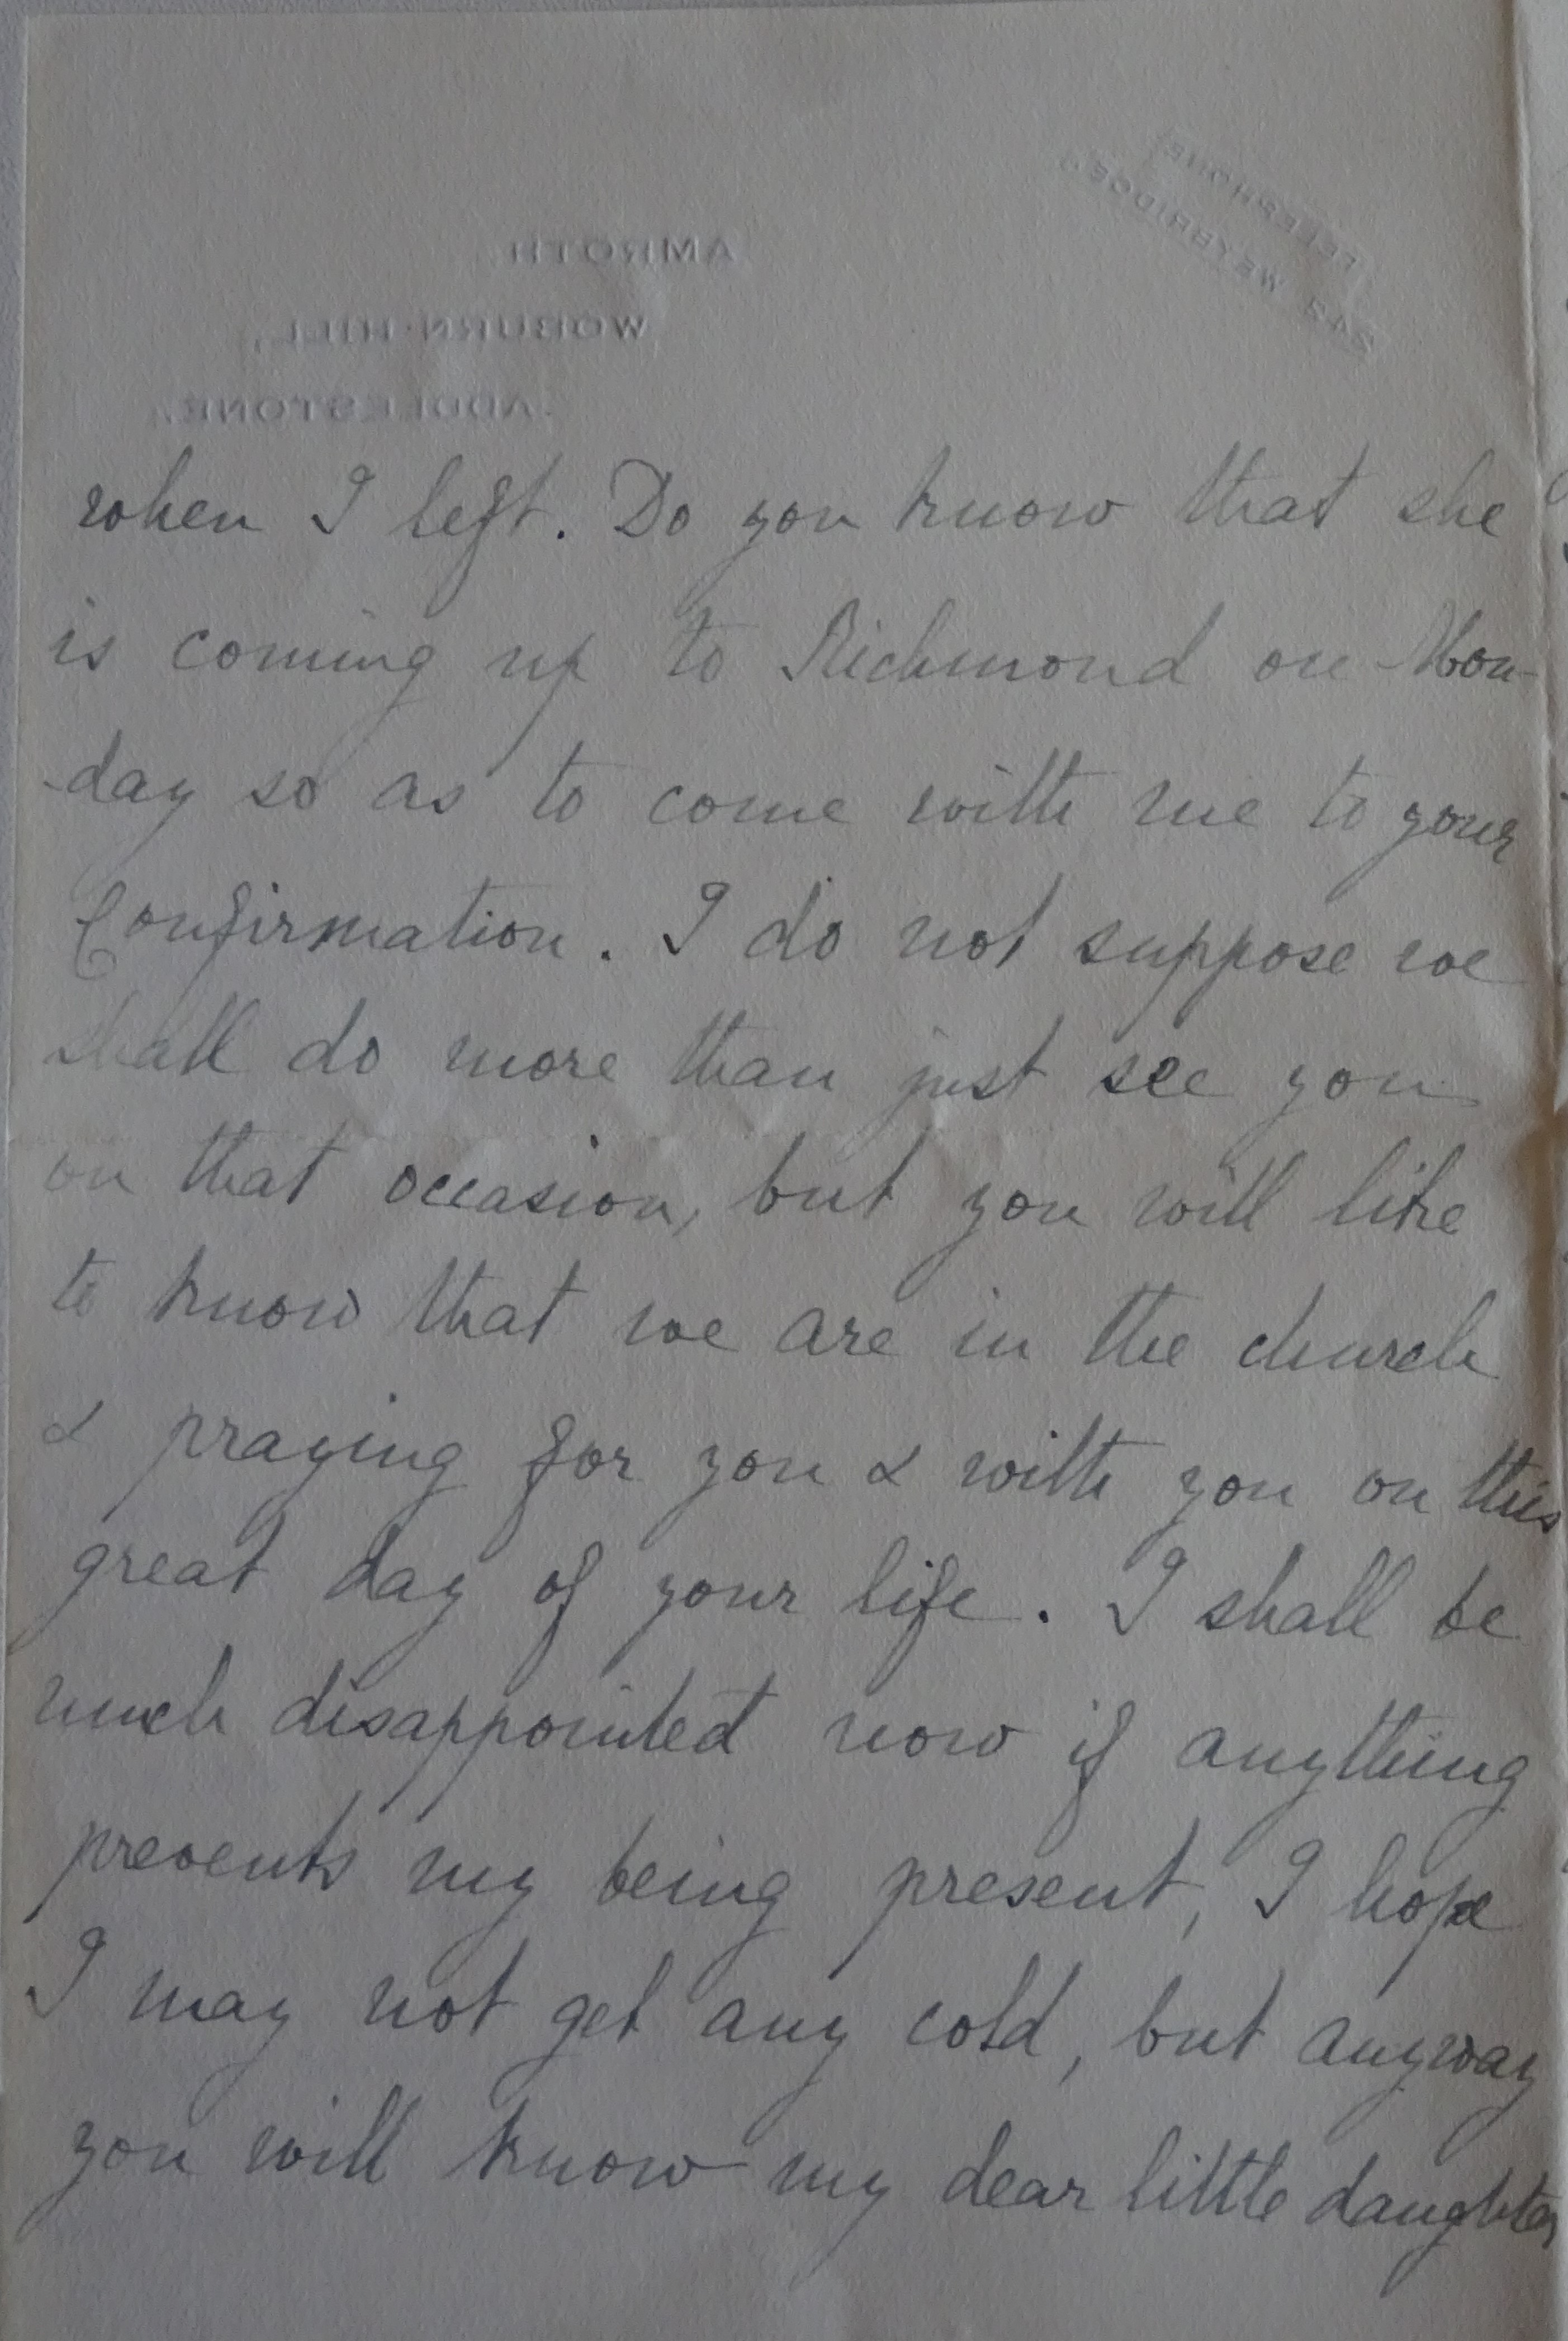 TELEPHONE
242 WEYBRIDGE.
AMROTH,
WOBURN HILL,
ADDLESTONE.
when I left. Do you know that she
is coming up to Richmond on Mon-
-day so as to come with me to your
Confirmation. I do not suppose we
shall do more than just see you
on that occasion, but you will like
to know that we are in the church
& praying for you & with you on this
great day of your life. I shall be
much disappointed now if anything
prevents my being present, I hope
I may not get any cold, but anyway
you will know my dear little daughter,